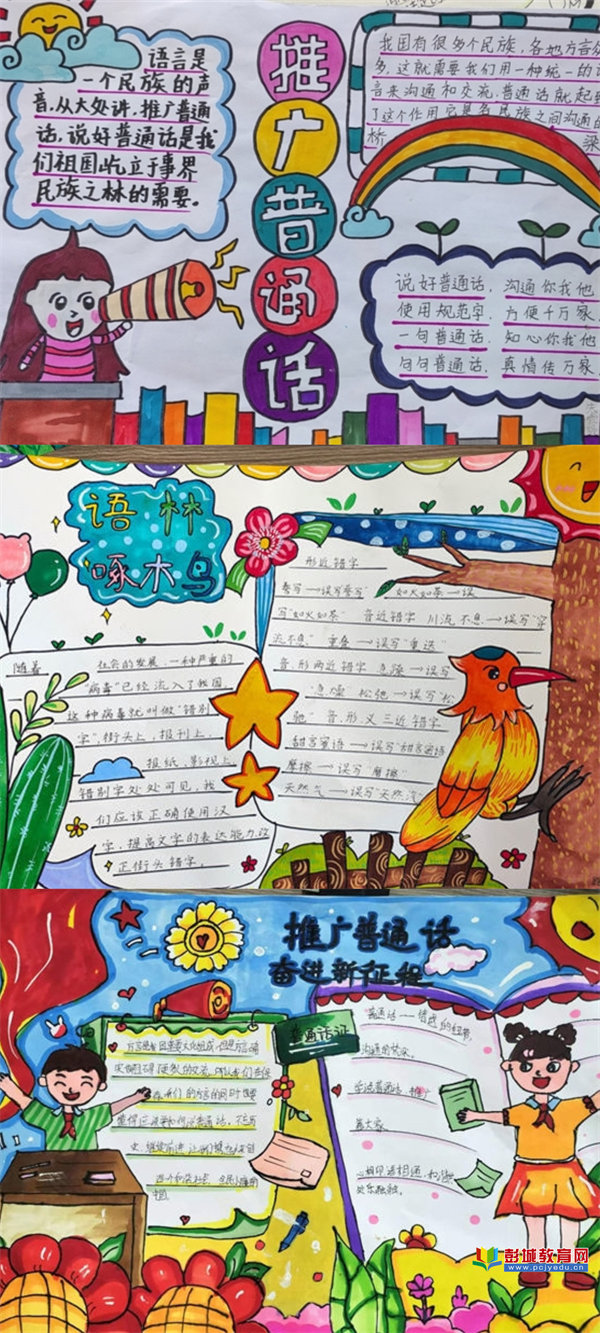 语言是
一个民族的声
音,从大处讲,推广普通
话,说好普通话是我
们祖国屹立于事界
民族之林的需要。
推
广
普
通
话
我国有很多个民族,各地方言
多,这就需要我们用一种统一的
言来沟通和交流,普通话就起
了这个作用,它是各民族之间沟通的
桥 梁
说好普通话, 沟通你我他
使用规范字, 方便千万家
一句普通话, 知心你我他
句句普通话, 真情传万家
语林
啄木鸟
随着 社会的发展,一种严重的
"病毒"已经流入了我国,
这种病毒就叫做"错别
字",街头上,报刊上,
报纸、影视上
错别字处处可见,我
们应该正确使用汉
字,提高文字的表达能力,改
正街头错字。
形近错字
如火如荼→误
写"如火如茶" 音近错字 川流不息→误写"穿
流不息" 重叠→误写"重迭"
音形两近错字 急躁→误写
"急燥" 松弛→误写"松
驰" 音形义三近错字
甜言蜜语→误写"甜言密语
摩擦→误写"磨擦"
天然气→误写"天然汽"
推广普通话
奋进新征程
普通话证
普通话——情感的纽带,
沟通的桥梁。
学说普通话,推广
靠大家
心相印语相通,
处乐融融。
彭城教育网
www.pcjyedu.cn